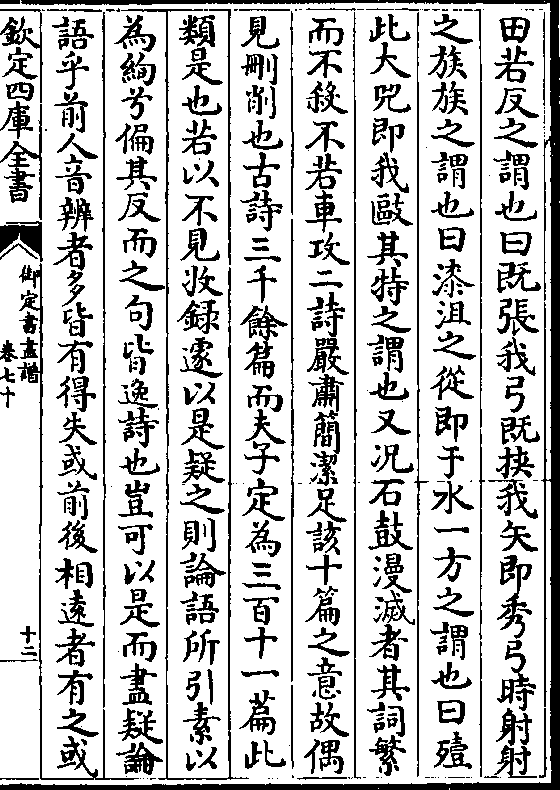 田若反之謂也曰既張我弓既挾我矢即秀弓時射射
之族族之謂也曰漆沮之從即于水一方之謂也曰殪
此大兕即我敺其特之謂也又况石鼓漫滅者其詞繁
而不殺不若車攻二詩嚴肅簡潔足該十篇之意故偶
見刪削也古詩三千餘篇而夫子定為三百十一篇此
類是也若以不見收録遂以是疑之則論語所引素以
為絢兮偏其反而之句皆逸詩也豈可以是而盡疑論
語乎前人音辨者多皆有得失或前後相逺者有之或
欽定四庫全書
御定書畫譜
卷七十
十二